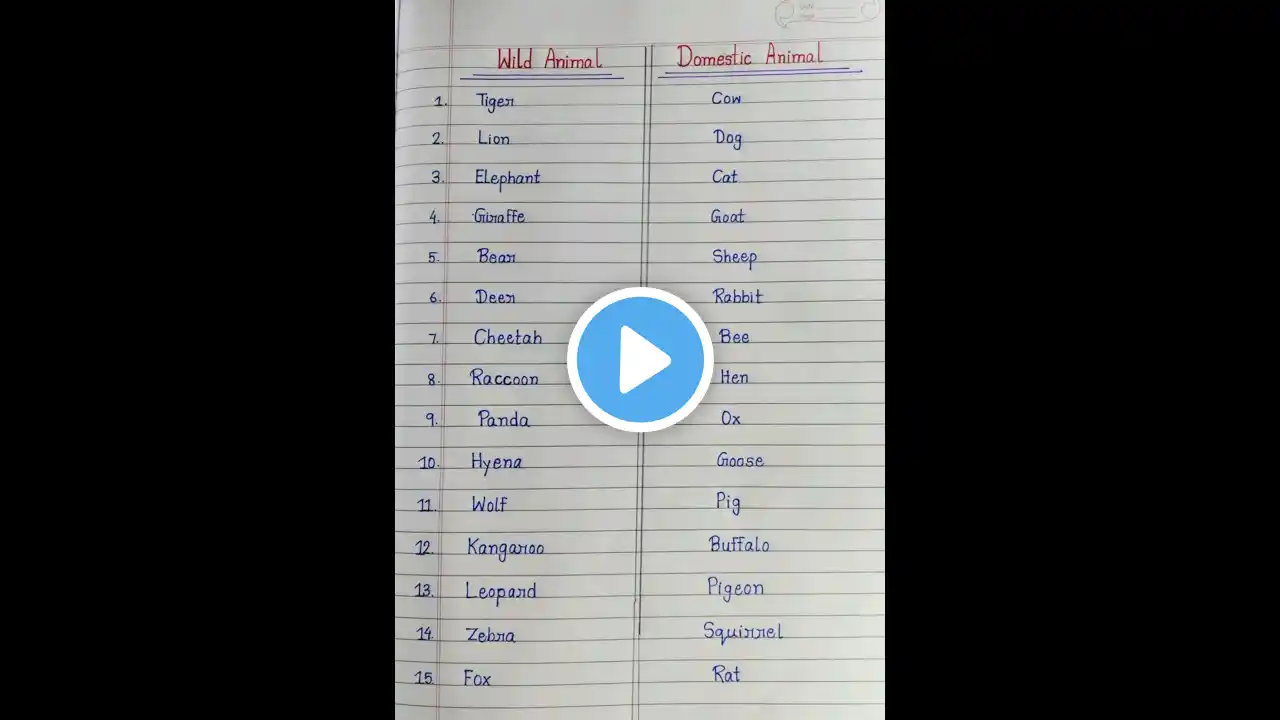 Wild Animal Domestic Animal
1. Tiger Cow
2. Lion Dog
3. Elephant Cat
4. Giraffe Goat
5. Bear Sheep
6. Deer Rabbit
7. Cheetah Bee
8. Raccoon Hen
9. Panda Ox
10. Hyena Goose
11. Wolf Pig
12. Kangaroo Buffalo
13. Leopard Pigeon
14. Zebra Squirrel
15. Fox Rat